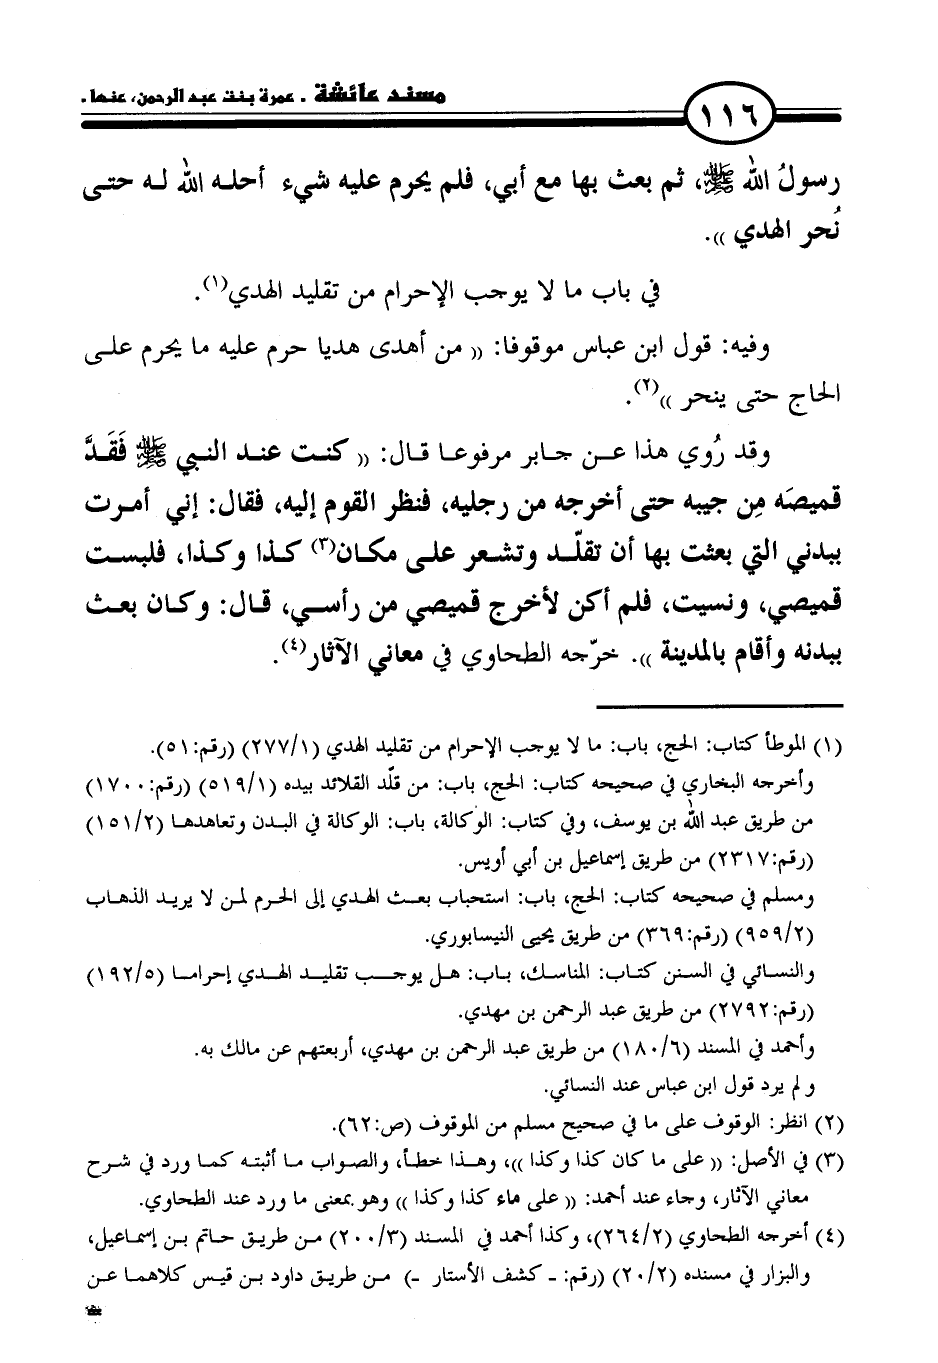 ١١٦ مسند عائشة . عمرة بنت عبد الرحمن، عنها .
رسولُ الله ﷺ، ثم بعث بها مع أبي، فلم يحرم عليه شيء أحله الله له حتى
نُحر الهدي )).
في باب ما لا يوجب الإحرام من تقليد الهدي(١).
وفيه: قول ابن عباس موقوفا: (( من أهدى هديا حرم عليه ما يحرم على
الحاج حتى ينحر ))(٢).
وقد رُوي هذا عن جابر مرفوعا قال: (( كنت عند النبي ﷺ فَقَدَّ
قميصَه مِن جيبه حتى أخرجه من رجليه، فنظر القوم إليه، فقال: إني أمرت
ببدني التي بعثت بها أن تقلّد وتشعر على مكان(٣) كذا وكذا، فلبست
قميصي، ونسيت، فلم أكن لأخرج قميصي من رأسي، قال: وكان بعث
ببدنه وأقام بالمدينة )). خرّجه الطحاوي في معاني الآثار(٤).
(١) الموطأ كتاب: الحج، باب: ما لا يوجب الإحرام من تقليد الهدي (٢٧٧/١) (رقم:٥١).
وأخرجه البخاري في صحيحه كتاب: الحج، باب: من قلّد القلائد بيده (٥١٩/١) (رقم:١٧٠٠)
من طريق عبد الله بن يوسف، وفي كتاب: الوكالة، باب: الوكالة في البدن وتعاهدها (١٥١/٢)
(رقم:٢٣١٧) من طريق إسماعيل بن أبي أويس.
ومسلم في صحيحه كتاب: الحج، باب: استحباب بعث الهدي إلى الحرم لمن لا يريد الذهاب
(٩٥٩/٢) (رقم:٣٦٩) من طريق يحيى النيسابوري.
والنسائي في السنن كتاب: المناسك، باب: هل يوجب تقليد الهدي إحراما (١٩٢/٥)
(رقم:٢٧٩٢) من طريق عبد الرحمن بن مهدي.
وأحمد في المسند (١٨٠/٦) من طريق عبد الرحمن بن مهدي، أربعتهم عن مالك به.
و لم يرد قول ابن عباس عند النسائي.
(٢) انظر: الوقوف على ما في صحيح مسلم من الموقوف (ص:٦٢).
(٣) في الأصل: (( على ما كان كذا وكذا ))، وهذا خطأ، والصواب ما أثبته كما ورد في شرح
معاني الآثار، وجاء عند أحمد: (( على ماء كذا وكذا )) وهو بمعنى ما ورد عند الطحاوي.
(٤) أخرجه الطحاوي (٢٦٤/٢)، وكذا أحمد في المسند (٢٠٠/٣) من طريق حاتم بن إسماعيل،
والبزار في مسنده (٢٠/٢) (رقم: ـ كشف الأستار ـ) من طريق داود بن قيس كلاهما عن